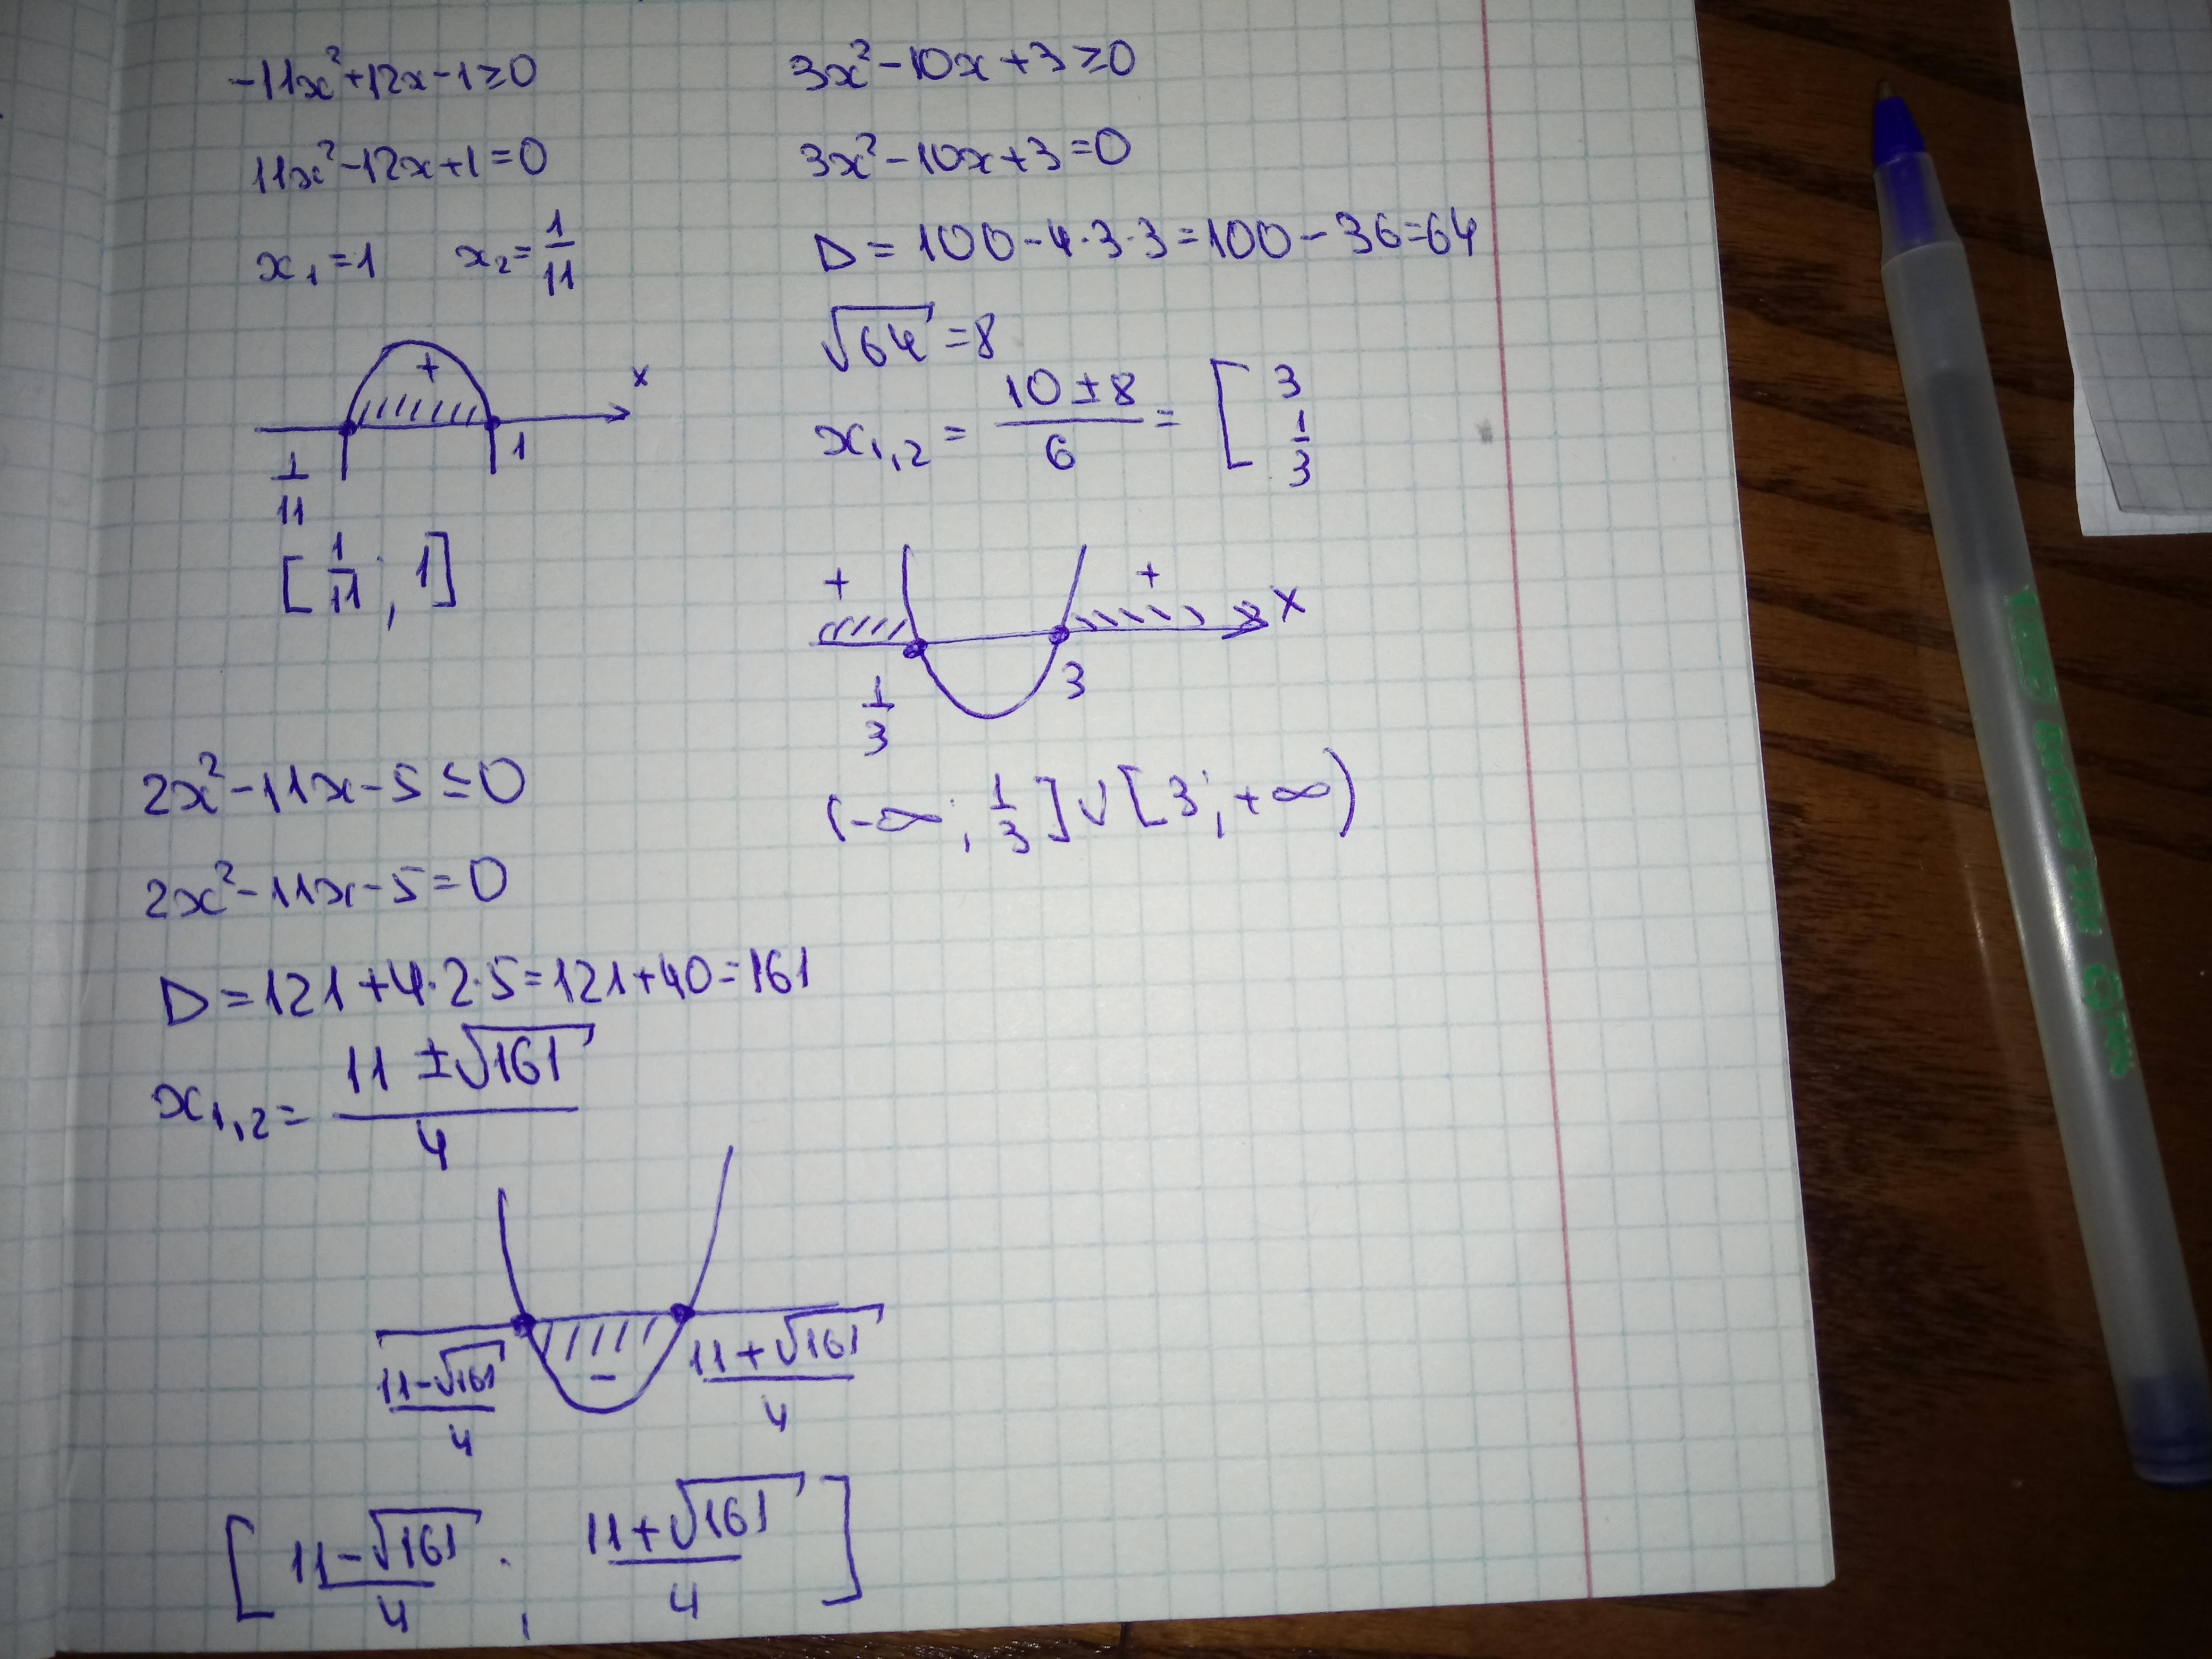 -11x²+12x-1≥0
11x²-12x+1=0
x₁=1 x₂=1/11
+
x
1/11 1
[1/11; 1]
3x²-10x+3≥0
3x²-10x+3=0
D=100-4·3·3=100-36=64
√64=8
x₁,₂=(10±8)/6=[3 1/3
+ +
x
1/3 3
(-∞; 1/3]∪[3;+∞)
2x²-11x-5≤0
2x²-11x-5=0
D=121+4·2·5=121+40=161
x₁,₂=(11±√161)/4
-
(11-√161)/4 (11+√161)/4
[(11-√161)/4; (11+√161)/4]